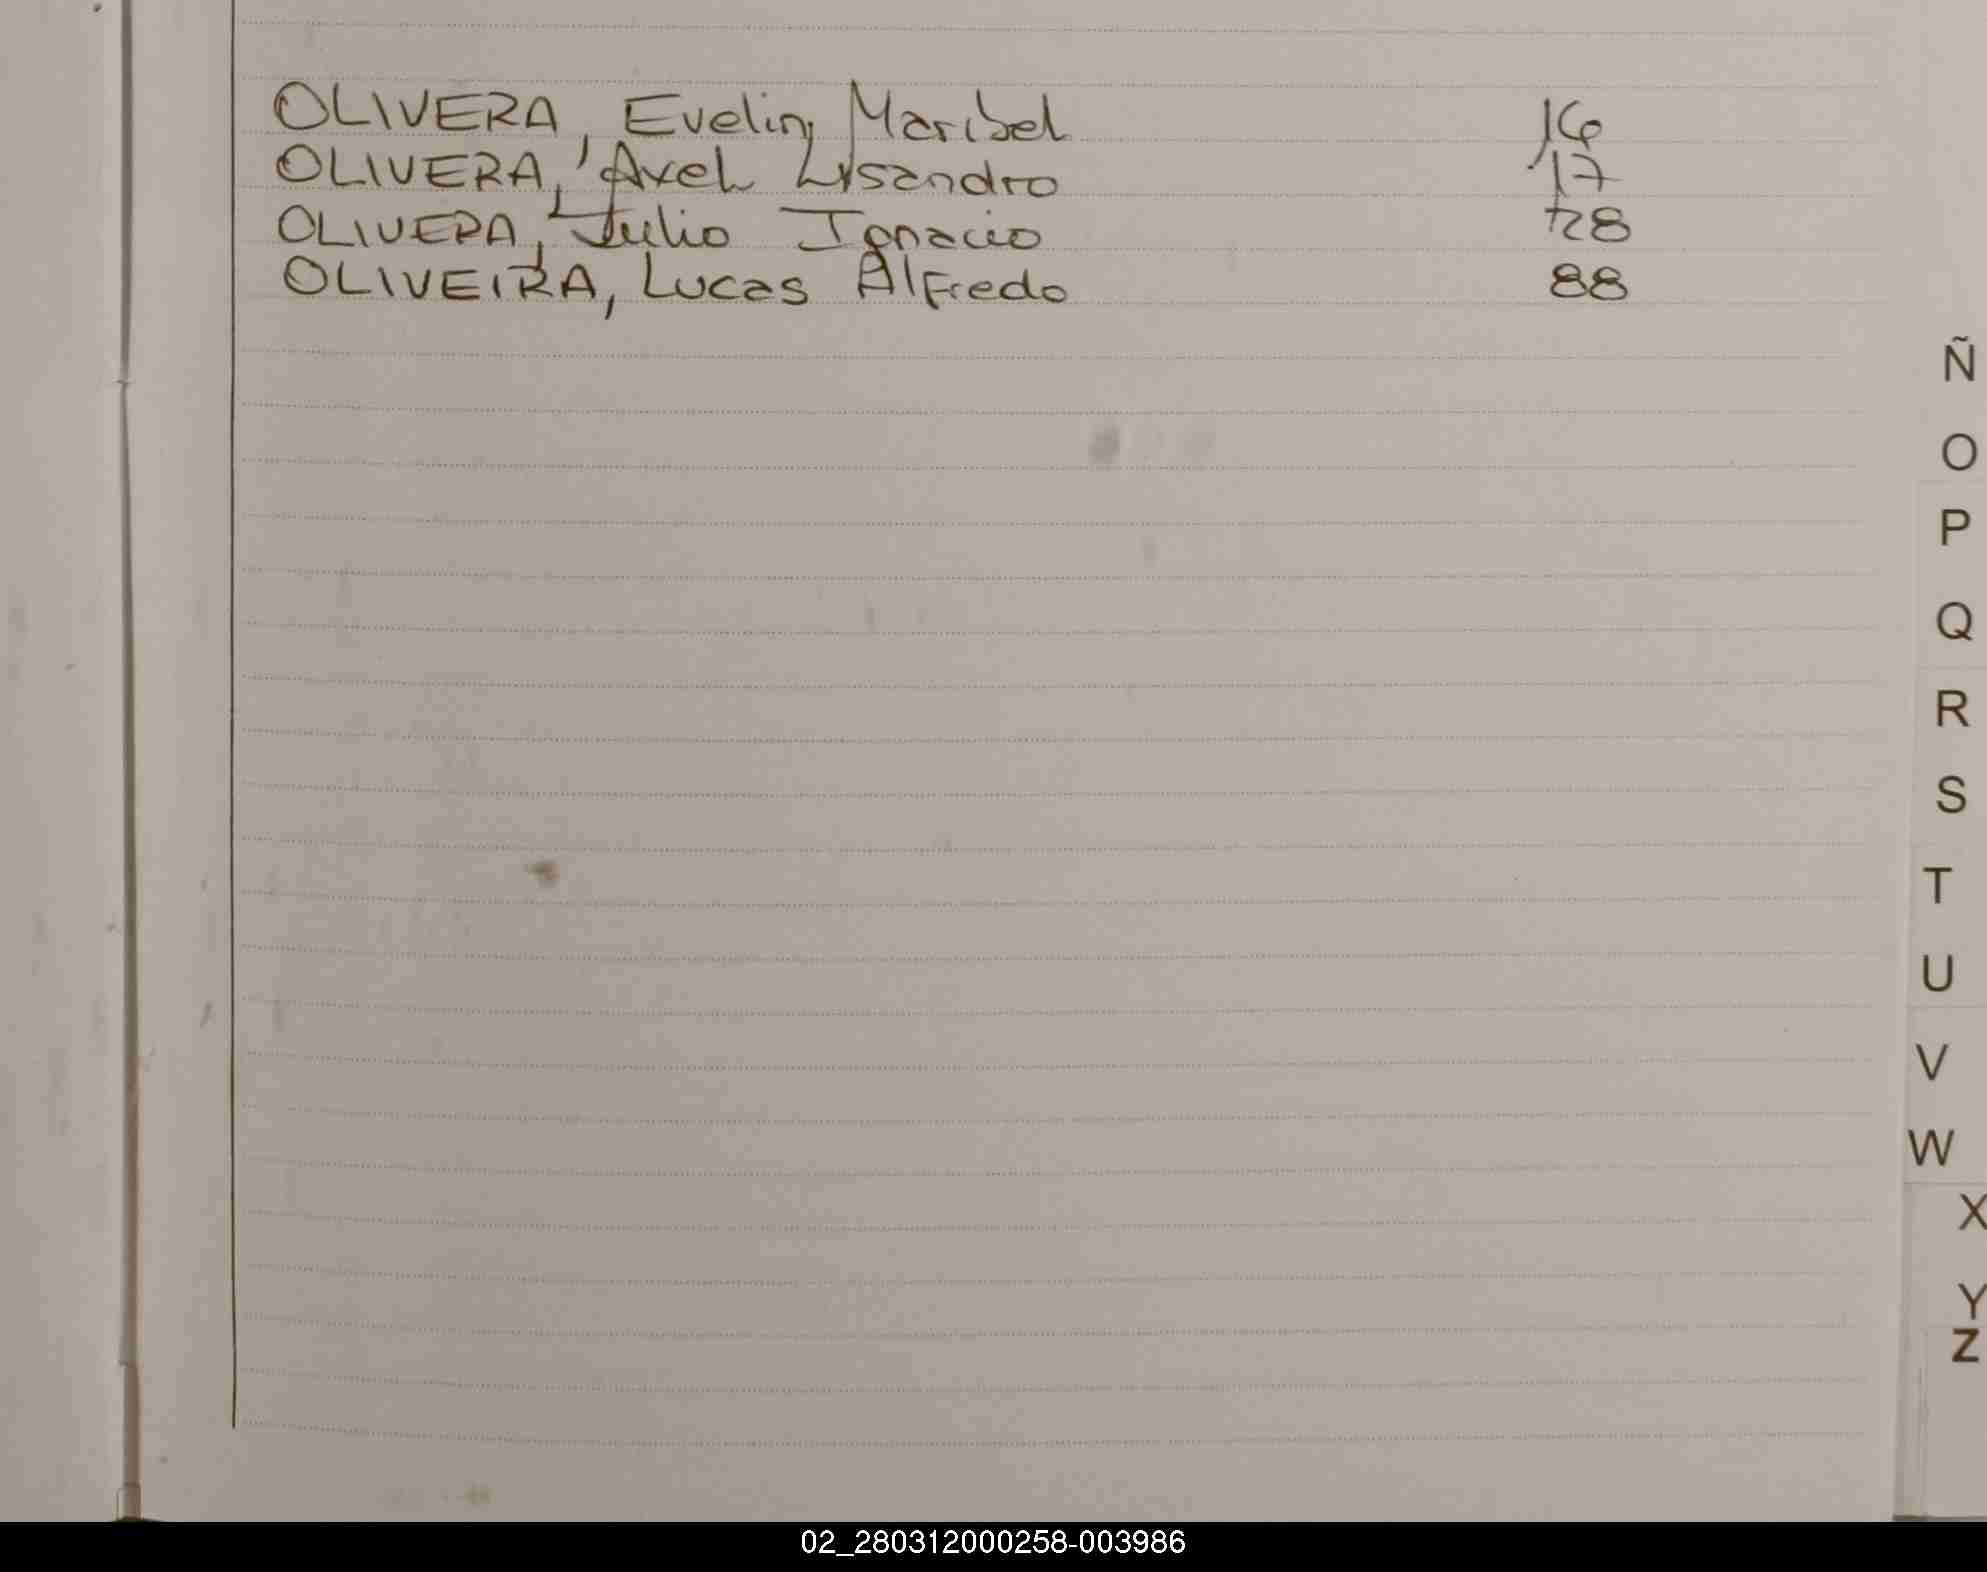 OLIVERA, Evelin Maribel 16
OLIVERA, Axel Lisandro 17
OLIVERA, Julio Ignacio 28
OLIVEIRA, Lucas Alfredo 88
Ñ
O
P
Q
R
S
T
U
V
W
X
Y
Z
02_280312000258-003986